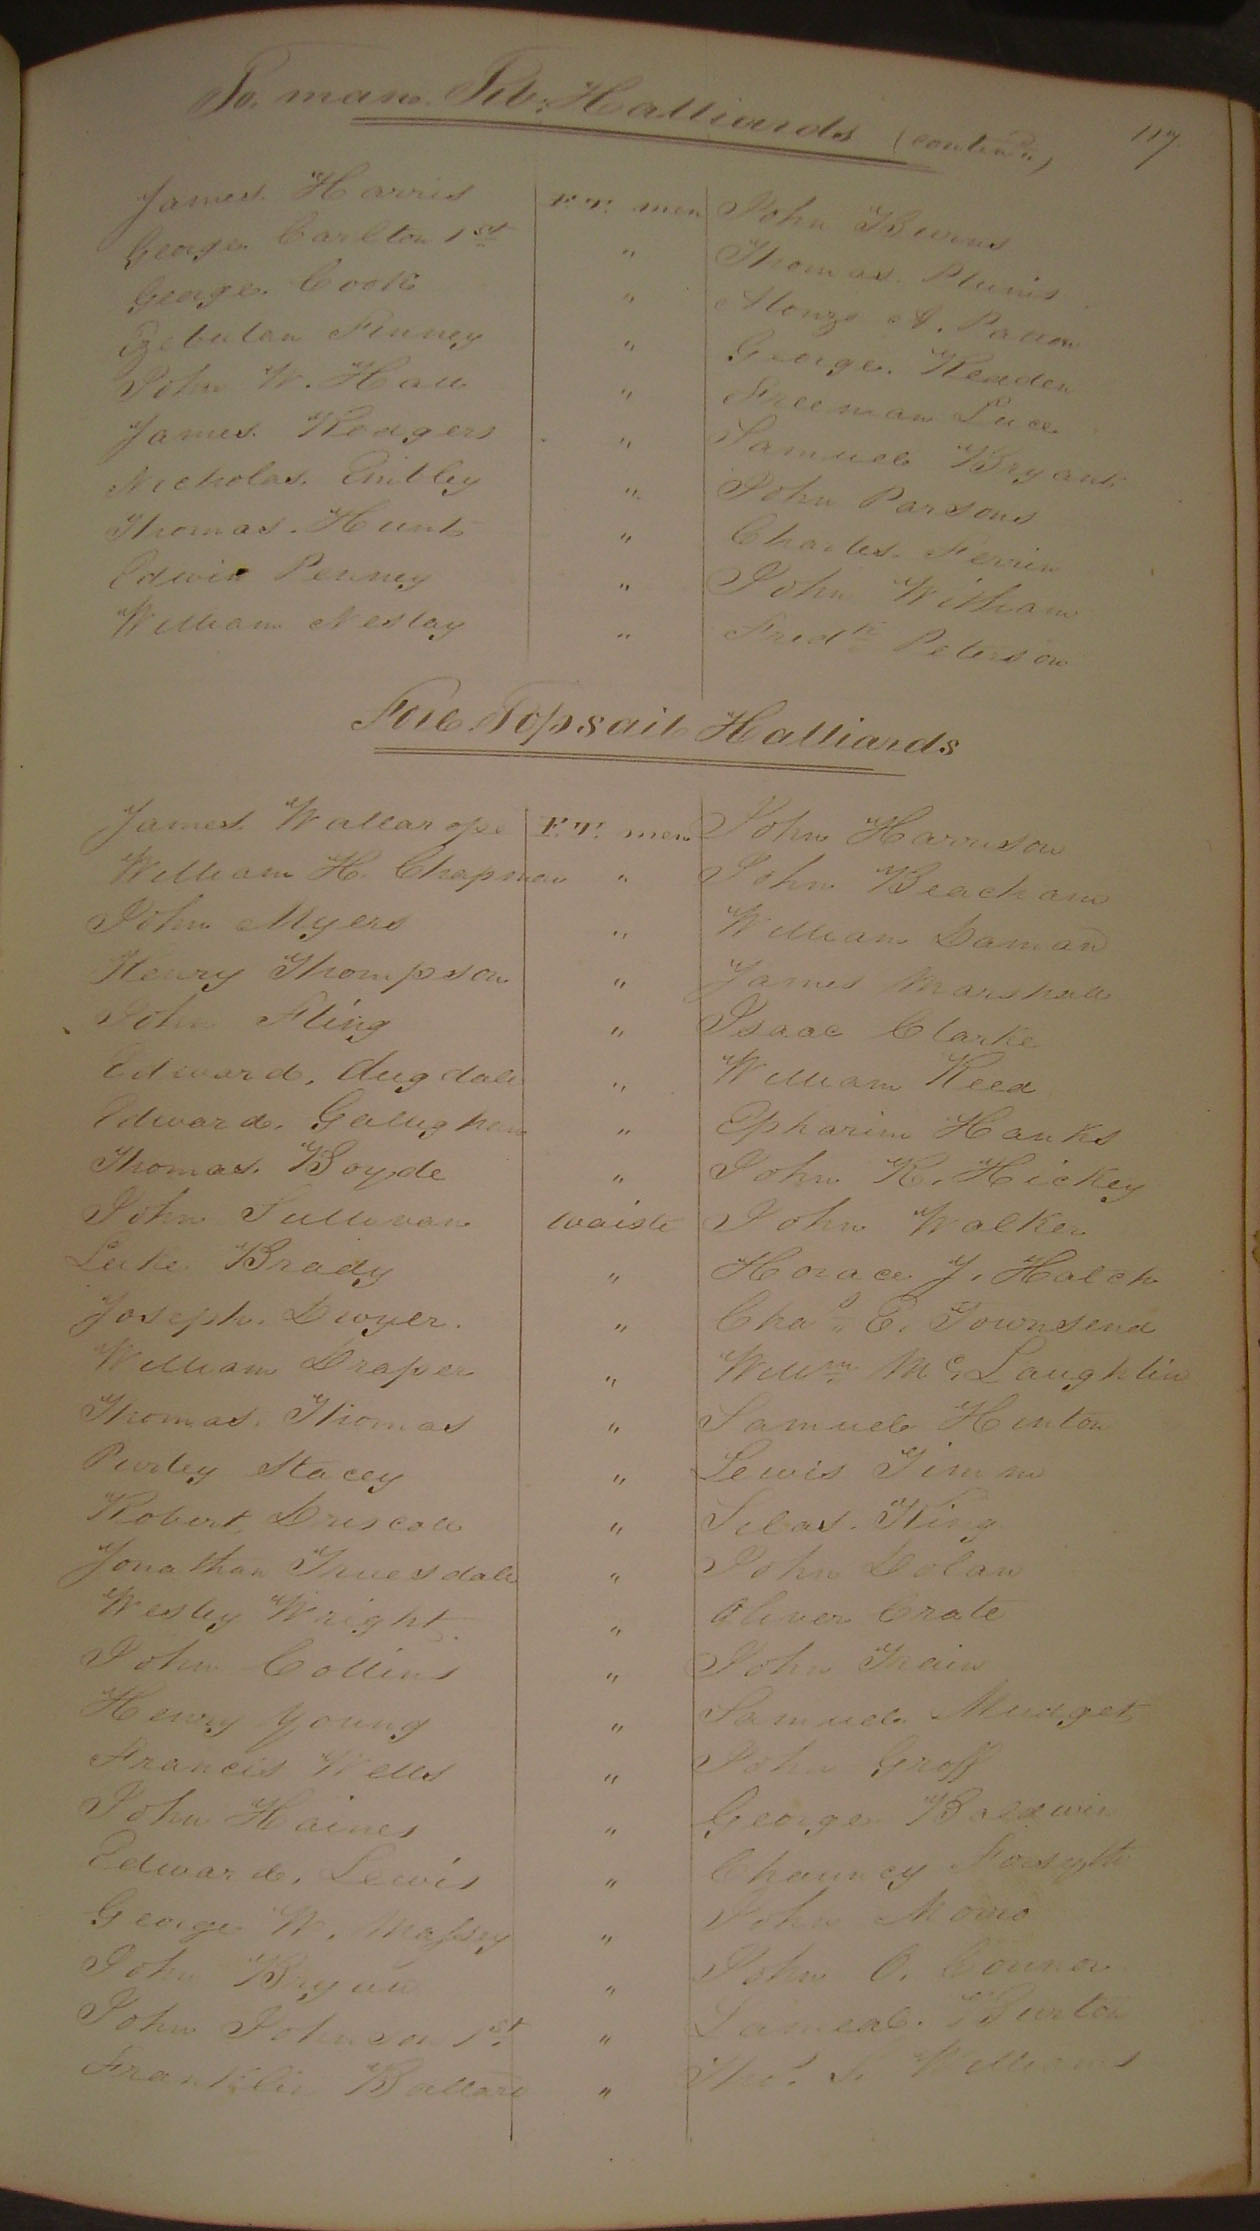 To man Jib Halliards (contin'd) 117
James Harris F.T. men John Burns
George Carlton 1st " Thomas
George Cook " Alonzo A.
Zebulan Finney " George
John W. Hall " Freeman Luce
James Rodgers " Samuel Bryant
Nicholas Embley " John Parsons
Thomas Hunt " Charles Perrin
Edwin Penney " John Witham
William Neslay " Fredk Peterson
Fore Topsail Halliards
James Wallar F.T. men John Harrison
William H. Chapman " John Beacham
John Myers " William Daman
Henry Thompson " James Marshall
John Fling " Isaac Clarke
Edward Dugdale " William Reed
Edward Gallagher " Epharim Hanks
Thomas Boyde " John K. Hickey
John Sullivan waiste John Walker
Luke Brady " Horace J. Hatch
Joseph Dwyer " Chas. E. Townsend
William Draper " Willm McLaughlin
Thomas Thomas " Samuel Hinton
Purley Stacey " Lewis Timm
Robert Driscoll " Silas King
Jonathan Truesdale " John Dolan
Wesley Wright " Oliver Crate
John Collins " John Train
Henry Young " Samuel Mudget
Francis Wells " John Groff
John Haines " George Baldwin
Edward Lewis " Chauncy Forsyth
George W. Massey " John
John Bryan " John O. Conner
John Johnson 1st " Burton
Franklin Ballard " Thos. S. Williams